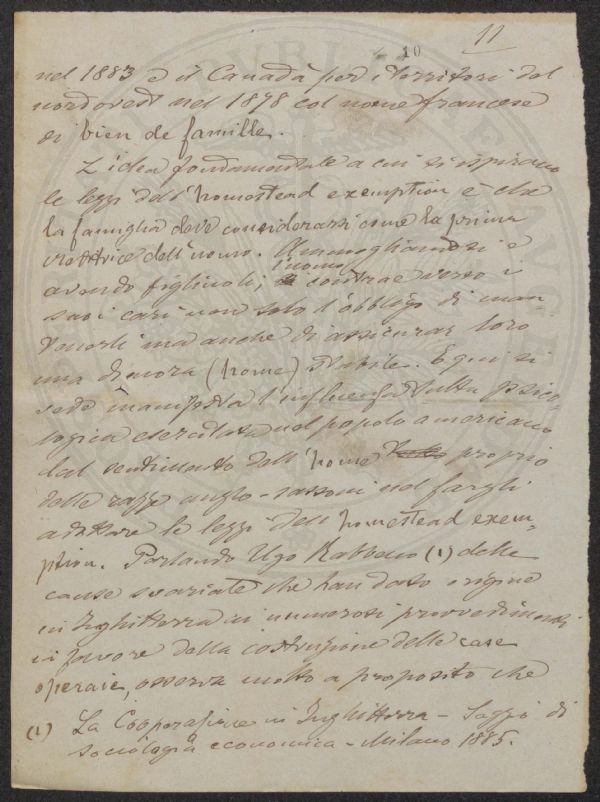 10
11
nel 1883 e il Canadà per i territori del
nordovest nel 1878 col nome francese
di bien de famille.
L'idea fondamentale a cui si ispirano
le leggi dell'homestead exemption è che
la famiglia deve considerarsi come la prima
dell'uomo. Ammogliandosi e
avendo figliuoli, l'uomo contrae verso i
suoi cari non solo l'obbligo di man
tenerli ma anche di assicurar loro
una dimora (home) stabile. E qui si
vede manifesta l'influenza tutta psico-
logica esercitata nel popolo americano
dal sentimento dell'home proprio
delle razze anglo-sassoni nel fargli
adottare le leggi dell'homestead exem-
ption. Parlando Ugo Rabbeno (1) delle
cause svariate che han dato origine
in Inghilterra ai numerosi provvedimenti
in favore della costruzione delle case
operaie, osserva molto a proposito che
(1) La Cooperazione in Inghilterra - Saggio di
sociologia economica - Milano 1885.